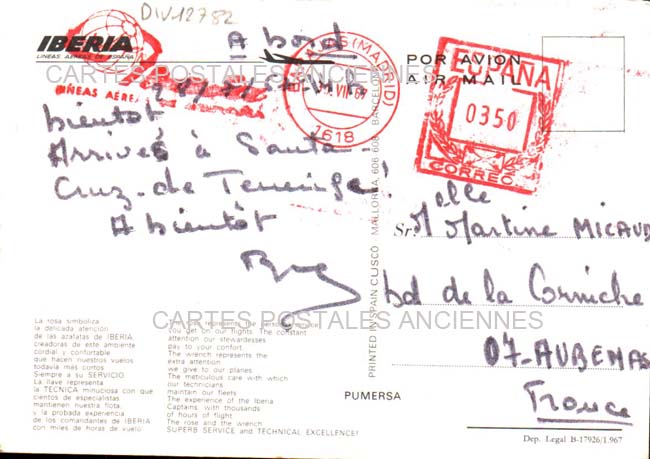 DIV.12782
IBERIA
LINEAS AEREAS DE ESPAÑA
A bord
POR AVION
AIR MAIL
ESPAÑA
0350
CORREO
(MADRID)
VII 67
7618
CARTES POSTALES ANCIENNES
bientôt
Arrivés à Santa-
Cruz-de Tenerife!
A bientôt
Sr.
Melle Martine MICAUD
bd de la Corniche
07-AUBENAS
France
PRINTED IN SPAIN CUSCO MALLORCA, 606-608 BARCELONA
La rosa simboliza
la delicada atención
de las azafatas de IBERIA,
creadoras de este ambiente
cordial y confortable
que hacen nuestros vuelos
todavía más cortos
Siempre a su SERVICIO
La llave representa
la TECNICA minuciosa con que
cientos de especialistas
mantienen nuestra flota,
y la probada experiencia
de los comandantes de IBERIA
con miles de horas de vuelo
The rose represents the personal service
you get on our flights. The constant
attention our stewardesses
pay to your comfort.
The wrench represents the
extra attention
we give to our planes.
The meticulous care with which
our technicians
maintain our fleets
The experience of the Iberia
Captains with thousands
of hours of flight.
The rose and the wrench
SUPERB SERVICE and TECHNICAL EXCELLENCE!
CARTES POSTALES ANCIENNES
PUMERSA
Dep. Legal B-17926/1.967